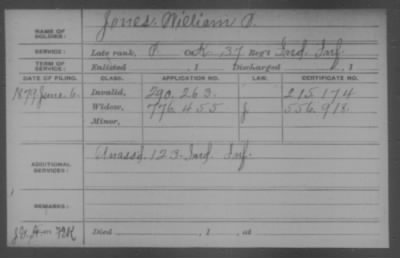 NAME OF SOLDIER: Jones, William P.
SERVICE: Late rank, P. Co. K, 37 Reg't Ind. Inf.
TERM OF SERVICE: Enlisted , 1 Discharged , 1
DATE OF FILING. CLASS. APPLICATION NO. LAW. CERTIFICATE NO.
1879 June 6. Invalid, 290.263. 215.174
Widow, 776.455 J 556.918.
Minor,
ADDITIONAL SERVICES: Unassd. 123. Ind. Inf.
REMARKS:
Died , 1 , at